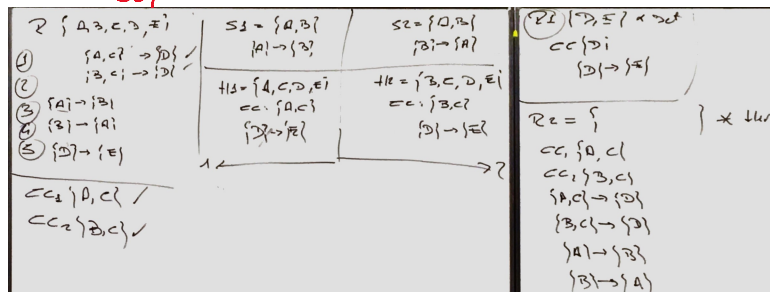 R { A, B, C, D, E }
① {A,C} → {D} ✓
② {B,C} → {D} ✓
③ {A} → {B}
④ {B} → {A}
⑤ {D} → {E}
CC1 {A,C} ✓
CC2 {B,C} ✓
S1 = {A,B}
{A} → {B}
S2 = {A,B}
{B} → {A}
H1 = {A,C,D,E}
CC: {A,C}
{D} → {E}
H2 = {B,C,D,E}
CC: {B,C}
{D} → {E}
1 ← → 2
R1 {D,E}
CC {D}
{D} → {E}
R2 = { } *
CC1 {A,C}
CC2 {B,C}
{A,C} → {D}
{B,C} → {D}
{A} → {B}
{B} → {A}